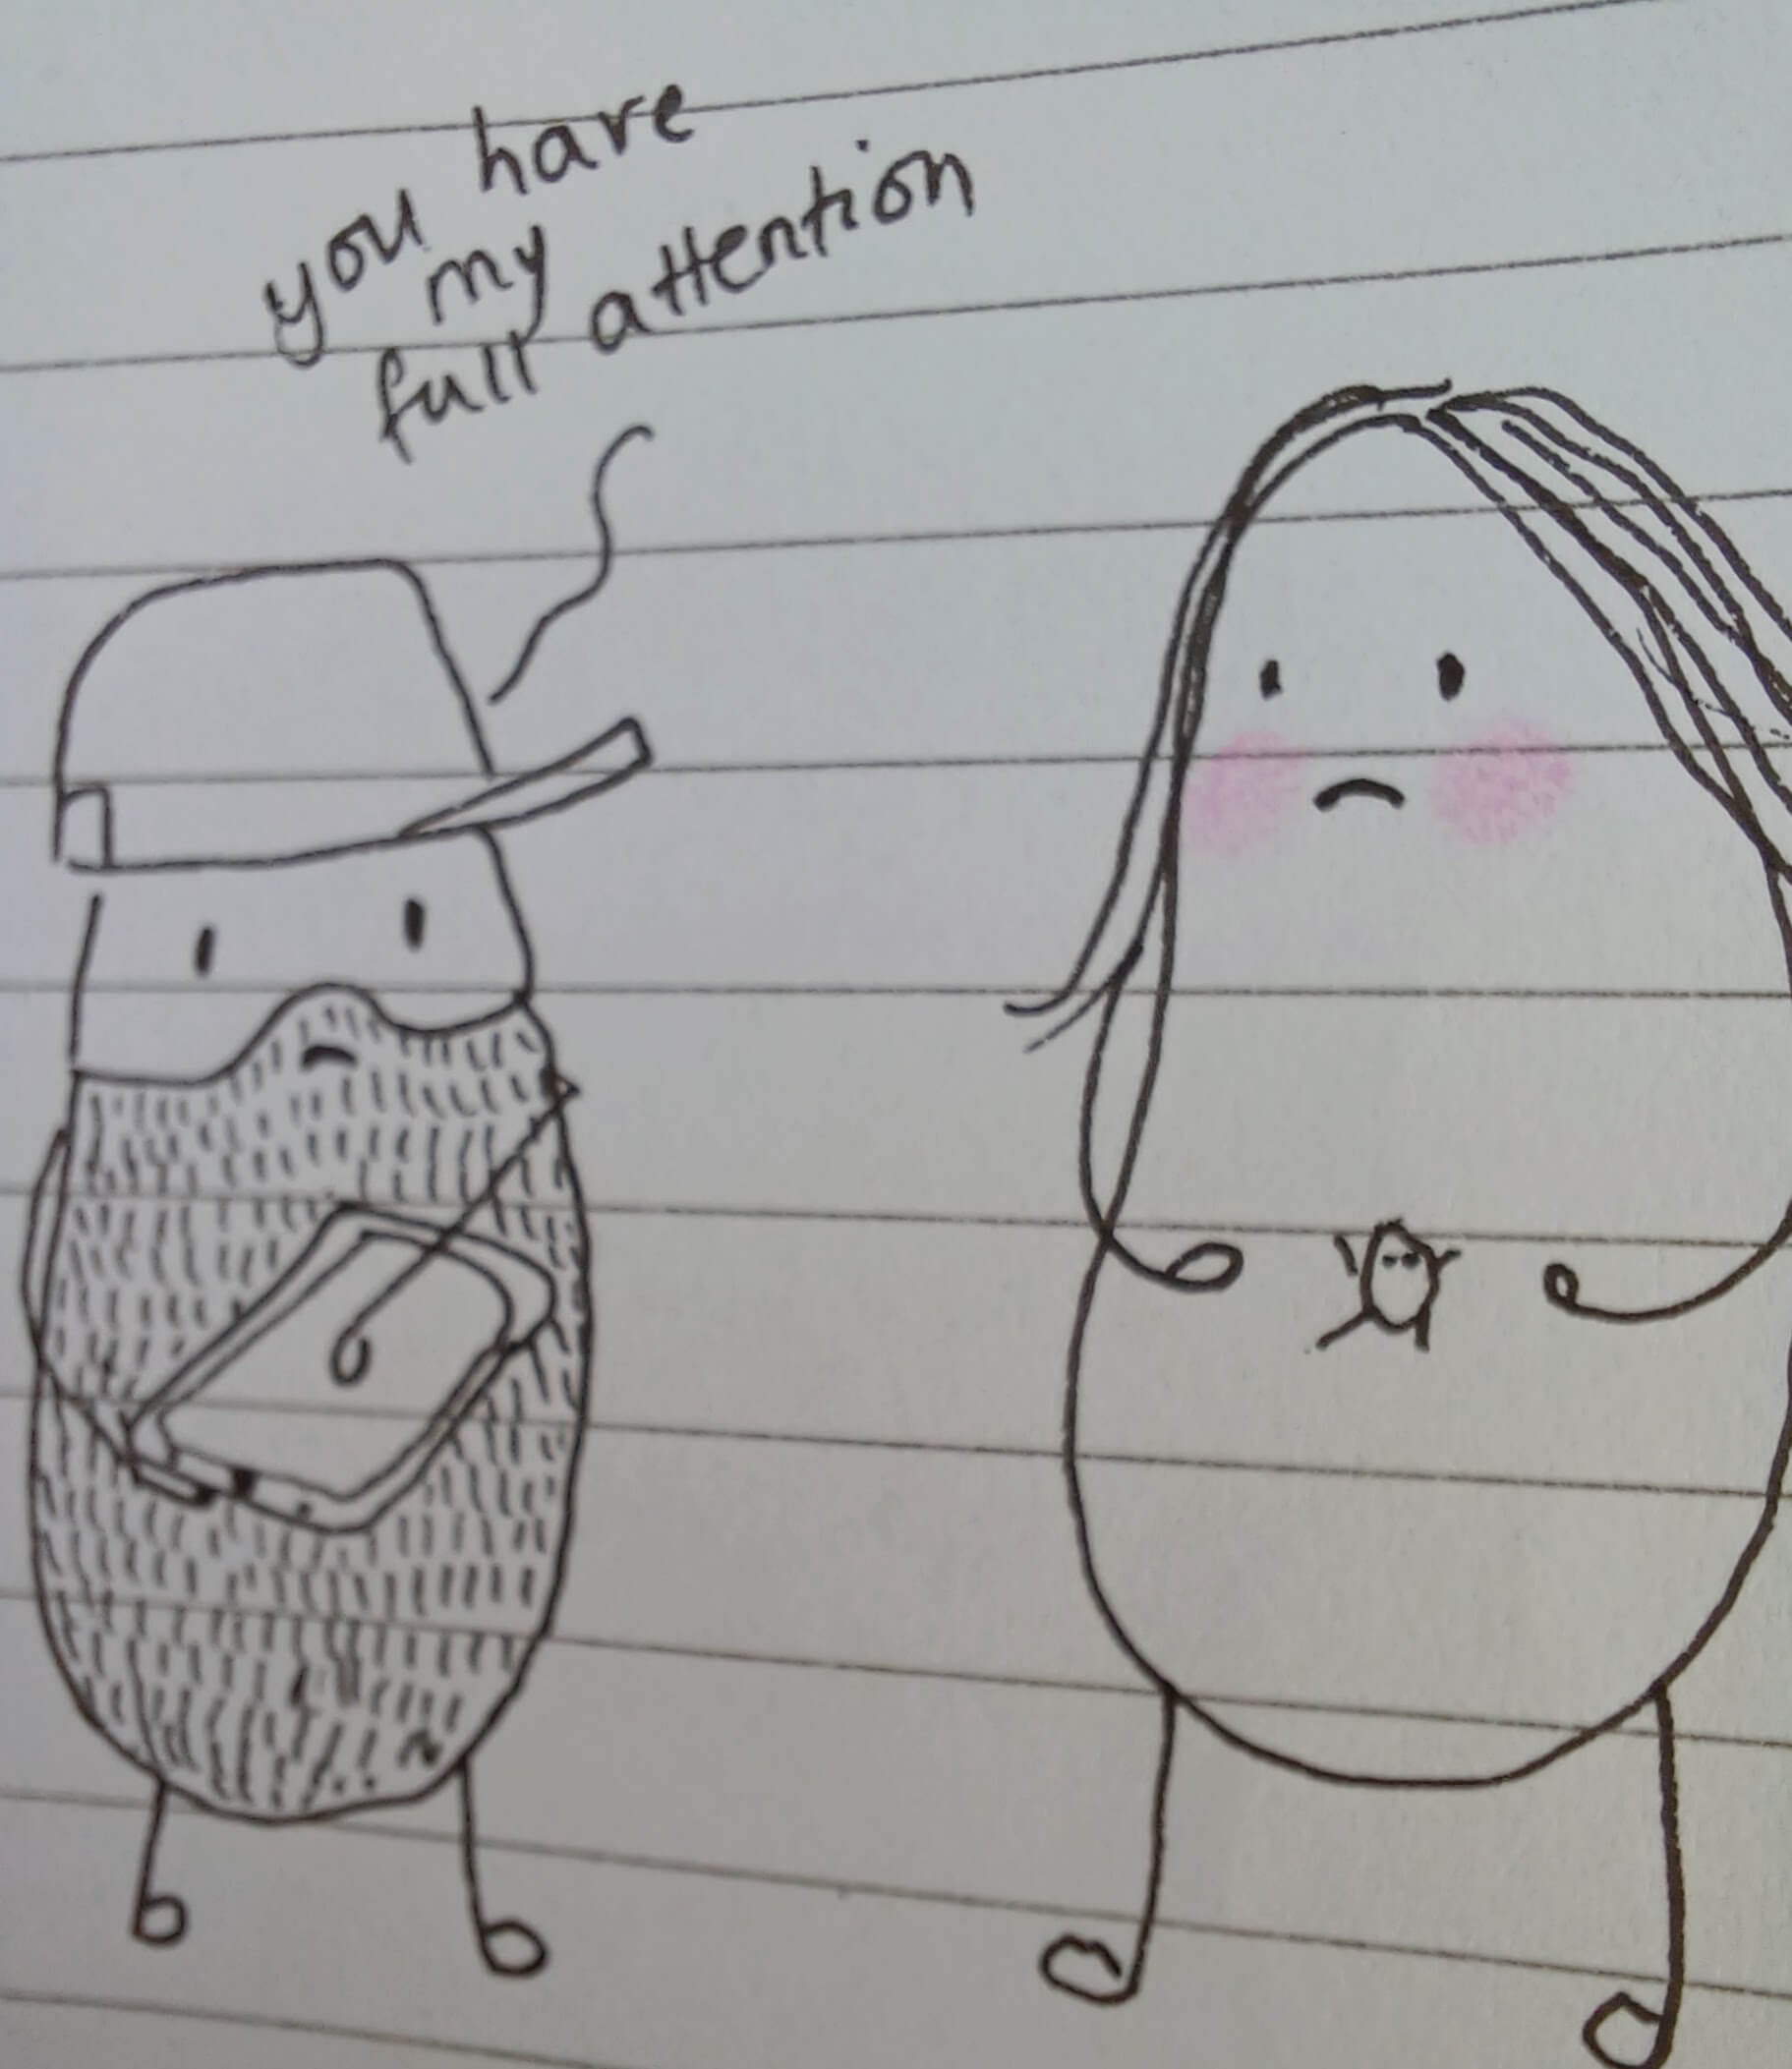 you have
my
full attention